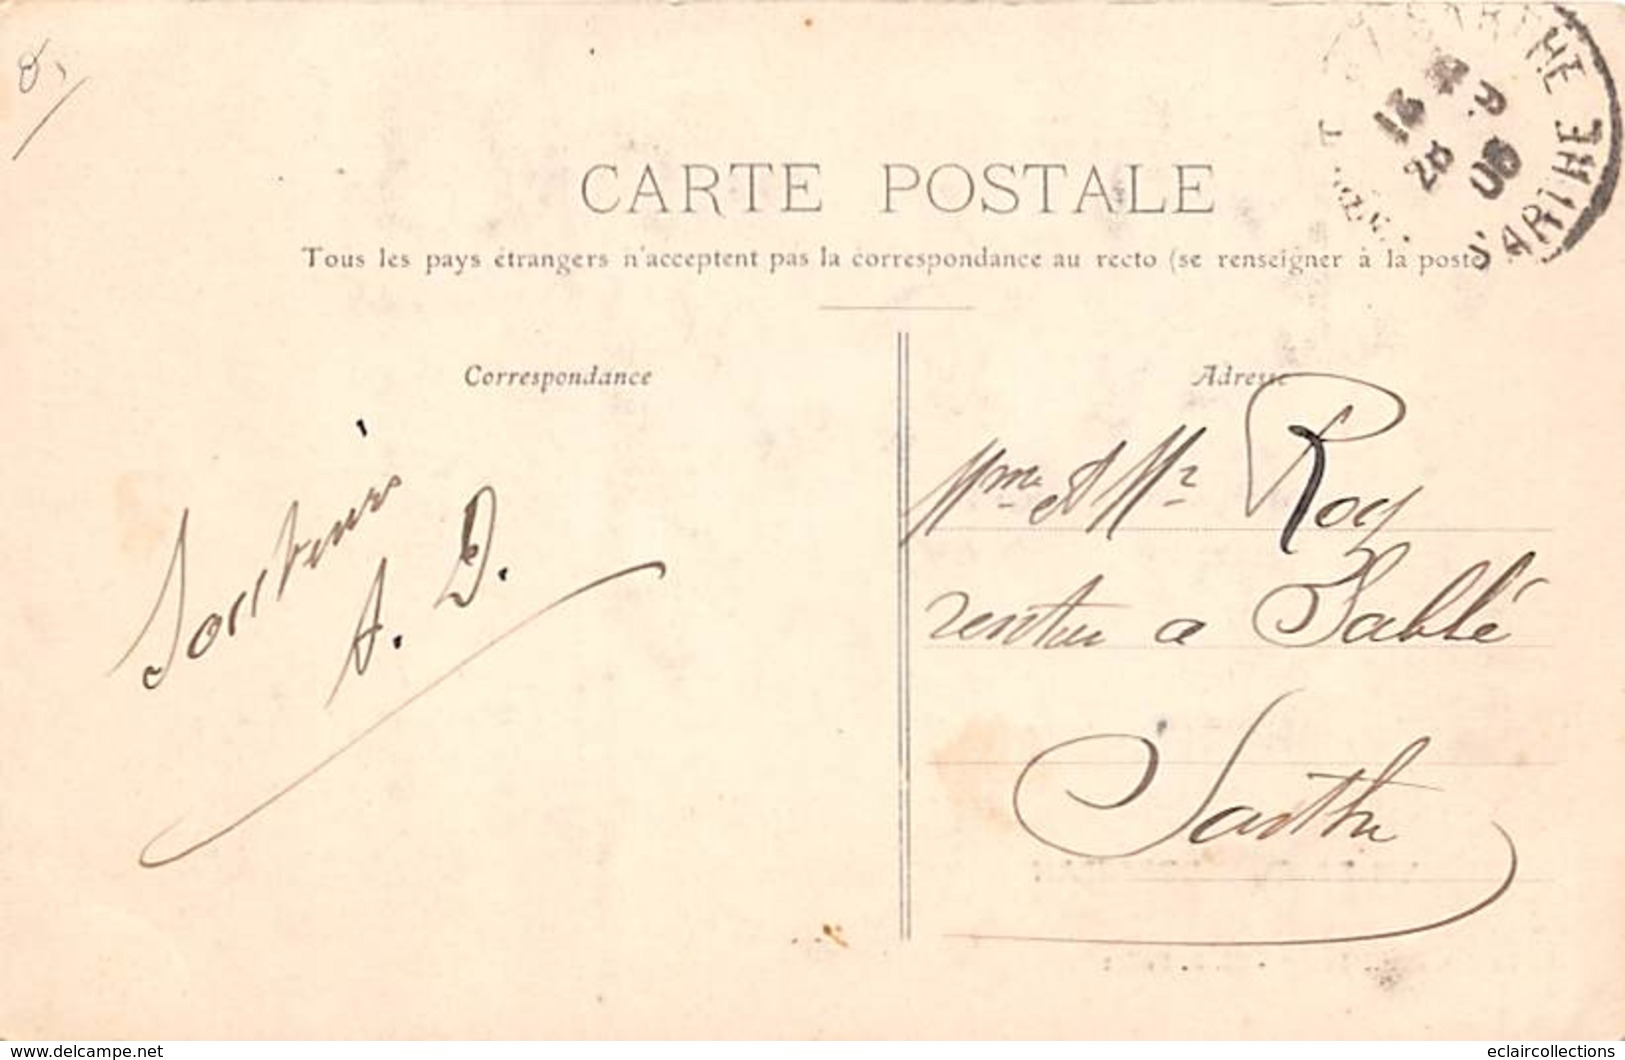 CARTE POSTALE
Tous les pays étrangers n'acceptent pas la correspondance au recto (se renseigner à la poste
Correspondance
Souvenirs
A. D.
Adresse
Mme et Mr Roy
rentier a Sablé
Sarthe
SARTHE
www.delcampe.net
eclaircollections